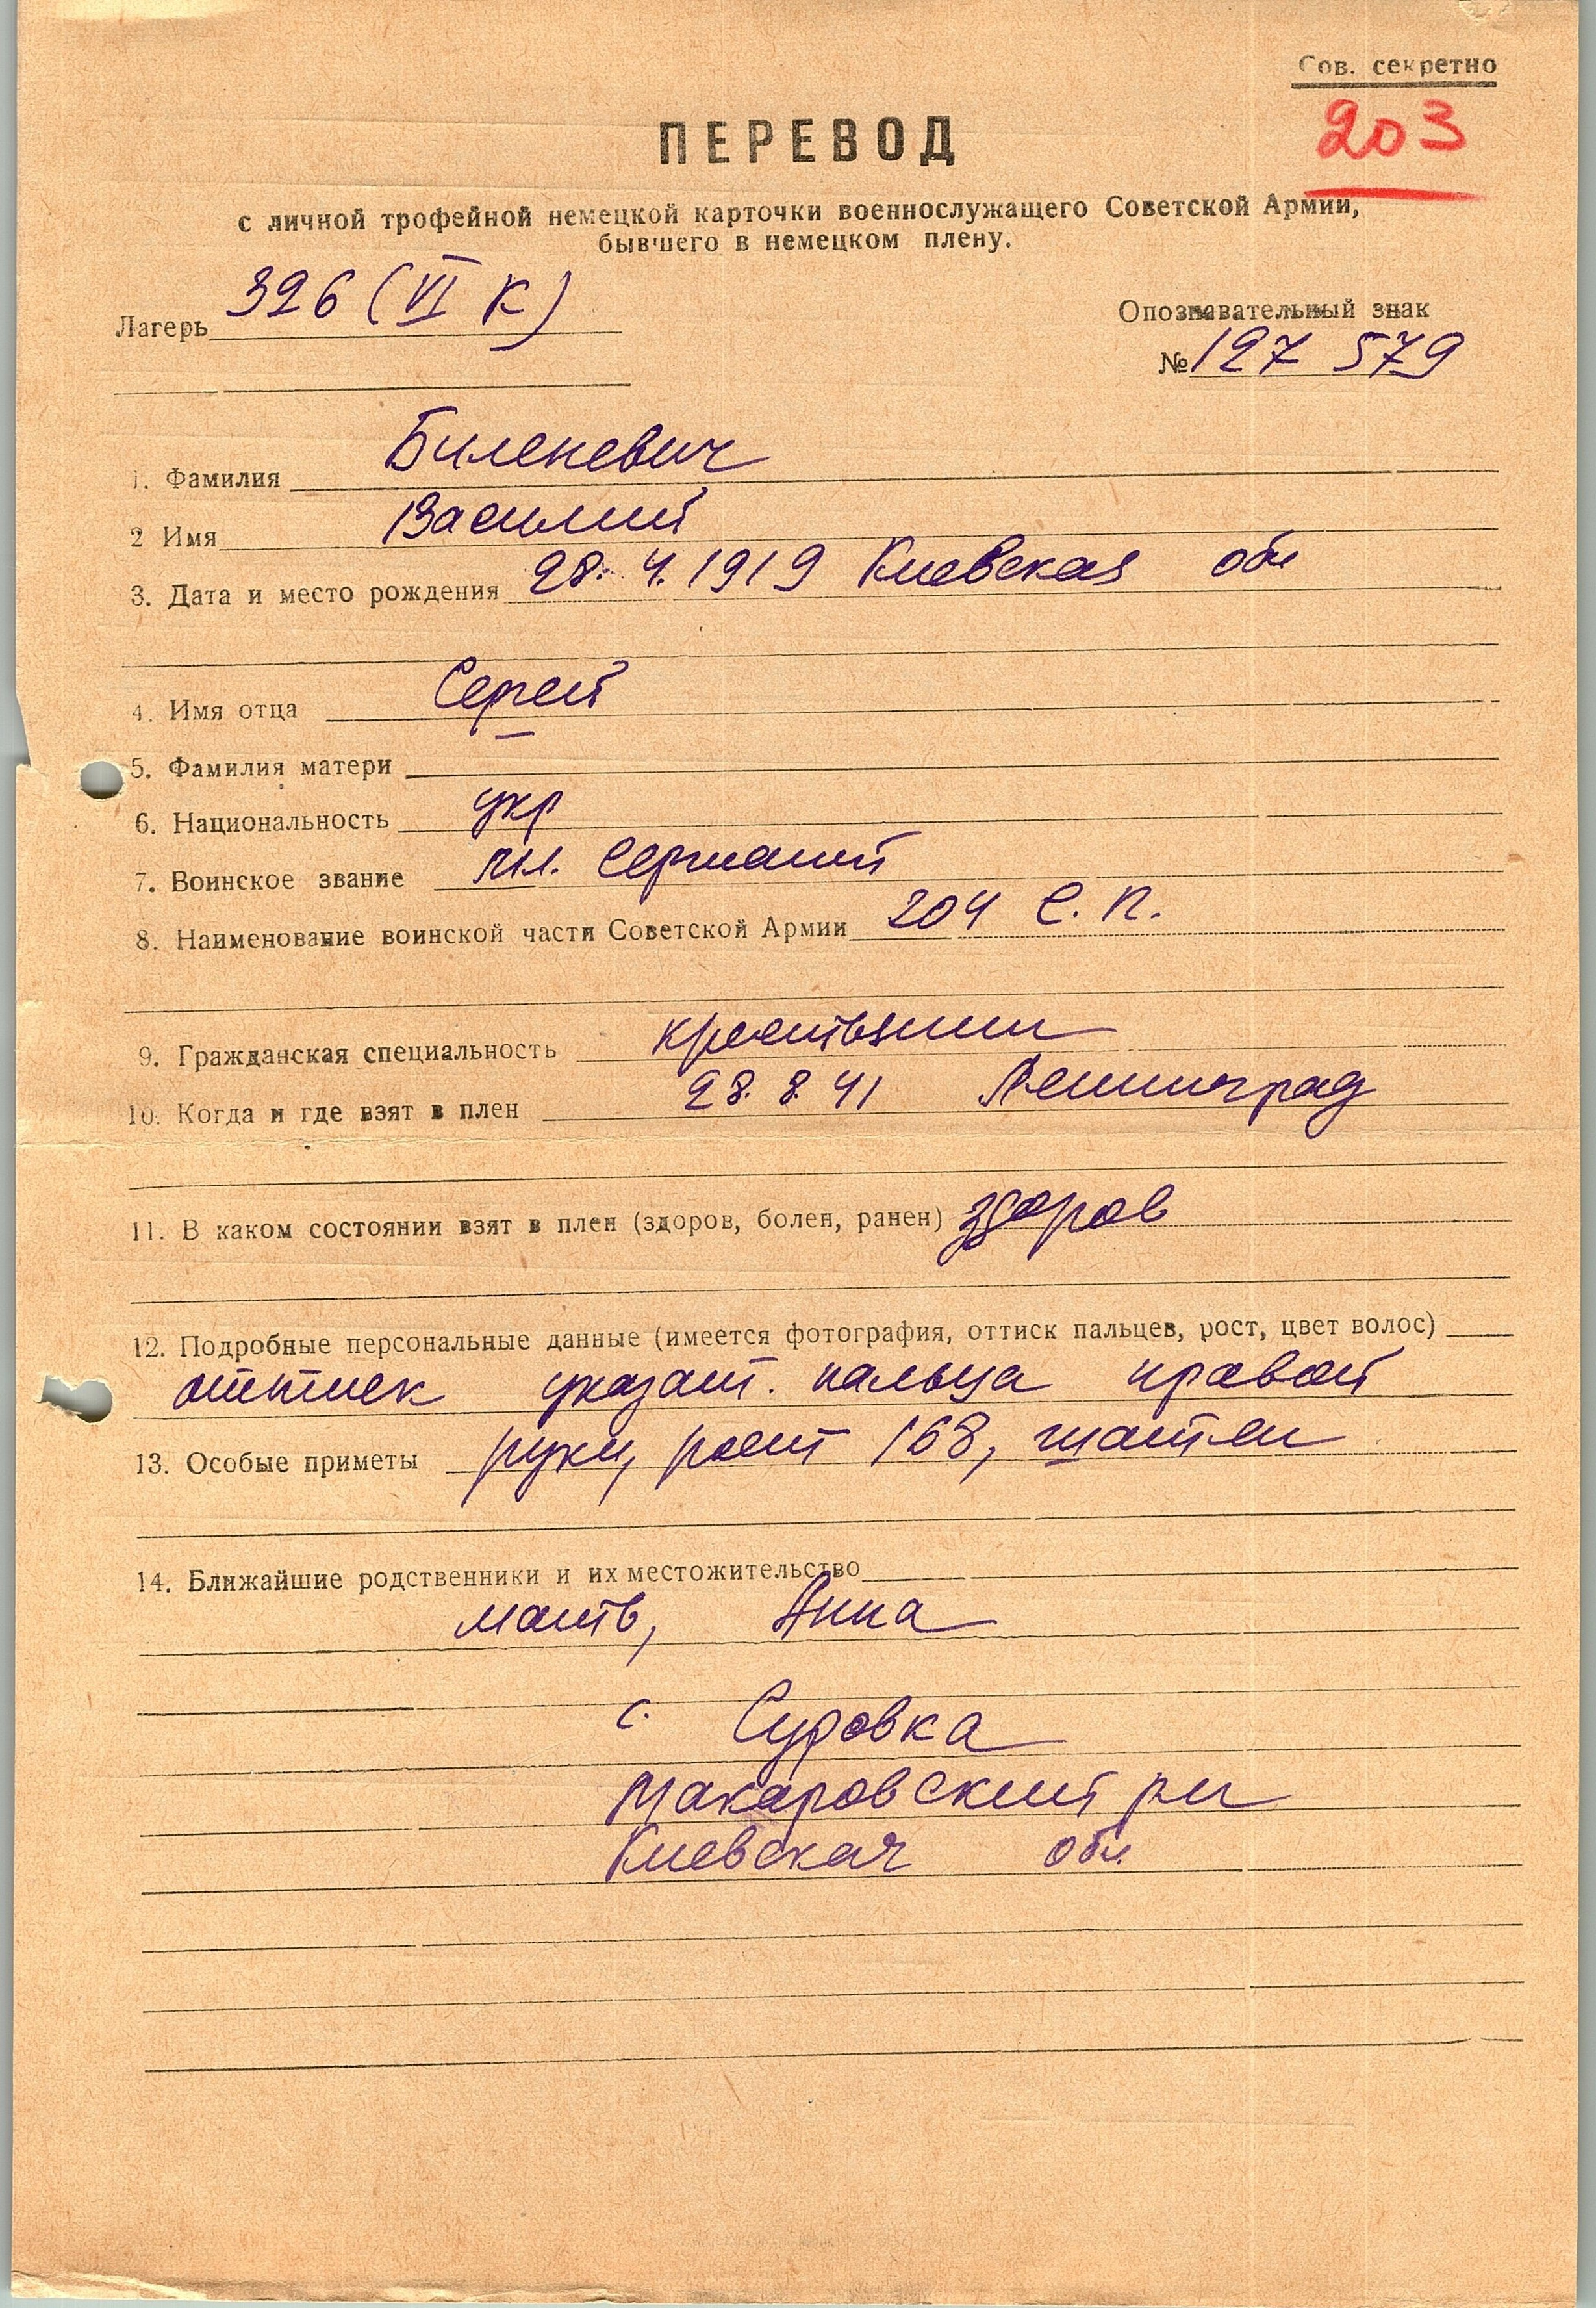 Сов. секретно
203
ПЕРЕВОД
с личной трофейной немецкой карточки военнослужащего Советской Армии,
бывшего в немецком плену.
Лагерь 326 (VI К)
Опознавательный знак
№ 127 579
1. Фамилия Биленевич
2 Имя Василий
3. Дата и место рождения 28.4.1919 Киевская обл
4. Имя отца Сергей
5. Фамилия матери —
6. Национальность укр
7. Воинское звание мл. сержант
8. Наименование воинской части Советской Армии 204 с. п.
9. Гражданская специальность крестьянин
10. Когда и где взят в плен 28.8.41 Ленинград
11. В каком состоянии взят в плен (здоров, болен, ранен) здоров
12. Подробные персональные данные (имеется фотография, оттиск пальцев, рост, цвет волос)
оттиск указат. пальца правой
13. Особые приметы руки, рост 168, шатен
14. Ближайшие родственники и их местожительство
мать, Анна
с. Суровка
Макаровский рн
Киевская обл.